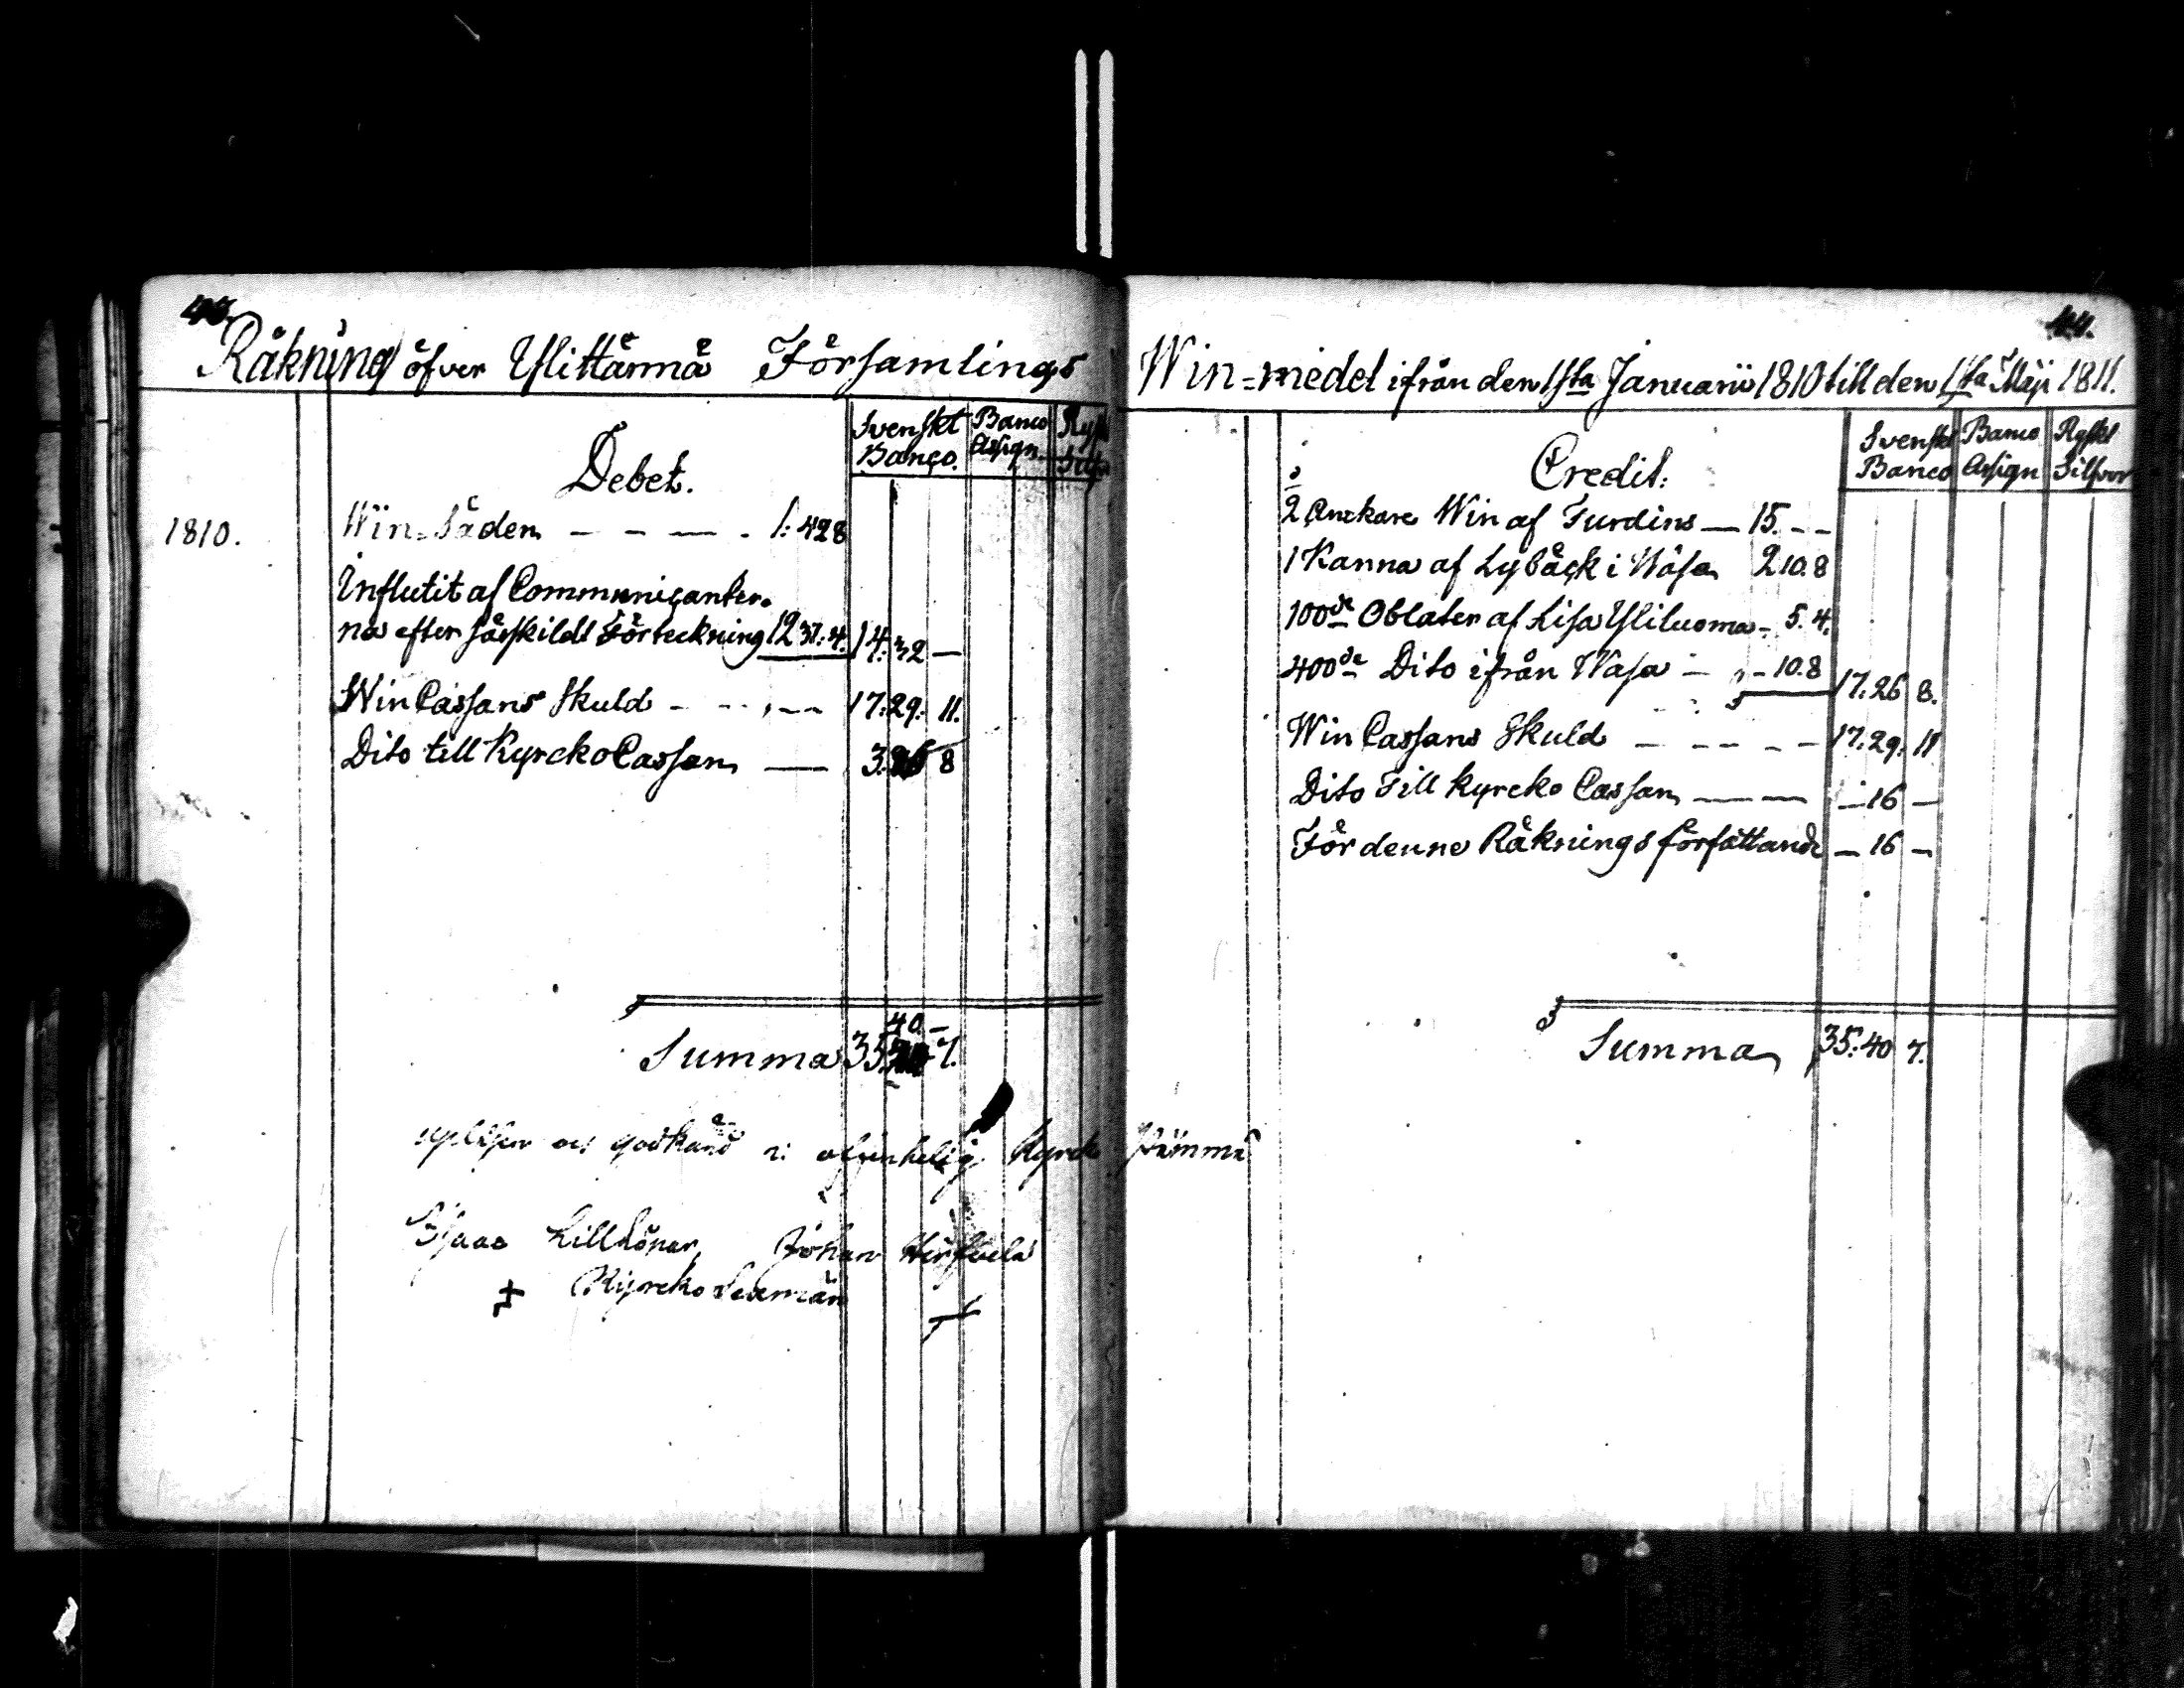 43.
Räkning öfver Ylistännä Församlings
Svenskt Banco.
Banco Assign.
Debet.
1810.
Win-Säden - - - - 1: 42 8
Influtit af Communicanter-
na efter särskildt Förteckning 12 37: 4. 14: 32 —
Win Cassans Skuld - - - - 17: 29: 11.
Dito till Kyrcko Cassan — 3. 26 8
40 -
Summa 35 7.
och godkänd Kyrck
Isaac Johan
+ Kyrcko
44.
Win-medel ifrån den 1sta Januarii 1810 till den 1sta Maji 1811.
Svenskt Banco
Banco Assign
Ryskt Silfver
Credit:
2 Anckare Win af Turdins — 15. - -
1 Kanna af Lybäck i Wasa 2 10. 8
100de Oblater af Lisa Yliluoma - 5. 4.
400de Dito ifrån Wasa — - 10. 8 17: 26 8.
Win Cassans Skuld - - - - 17: 29: 11
Dito Till Kyrcko Cassan — — - 16 -
För denne Räknings författande — 16 —
Summa 35: 40 7.